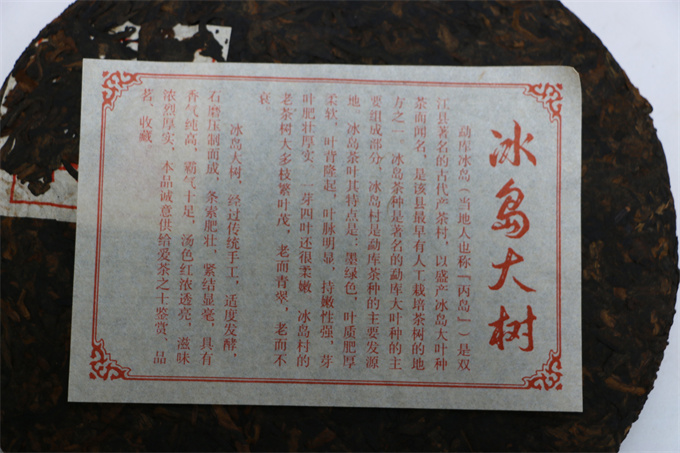 冰岛大树
勐库冰岛（当地人也称「丙岛」）是双
江县著名的古代产茶村，以盛产冰岛大叶种
茶而闻名，是该县最早有人工栽培茶树的地
方之一　冰岛茶种是著名的勐库大叶种的主
要组成部分，冰岛村是勐库茶种的主要发源
地，冰岛茶叶其特点是：墨绿色，叶质肥厚
柔软，叶背隆起，叶脉明显，持嫩性强，芽
叶肥壮厚实，一芽四叶还很柔嫩　冰岛村的
老茶树大多枝繁叶茂，老而青翠，老而不
衰
冰岛大树，经过传统手工，适度发酵，
石磨压制而成，条索肥壮，紧结显毫，具有
香气纯高，霸气十足，汤色红浓透亮，滋味
浓烈厚实，本品诚意供给爱茶之士鉴赏、品
茗、收藏